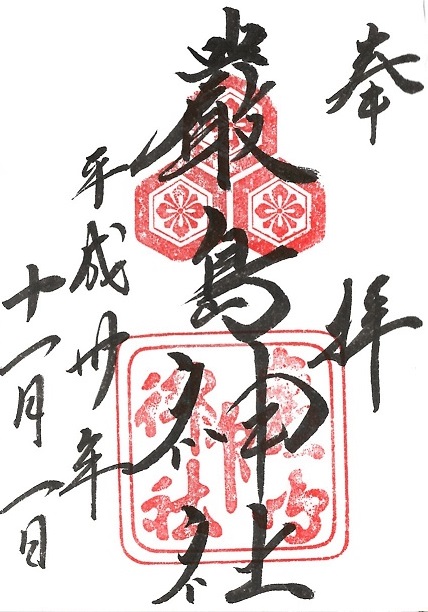 奉拝
嚴島神社
平成卅年
十一月一日